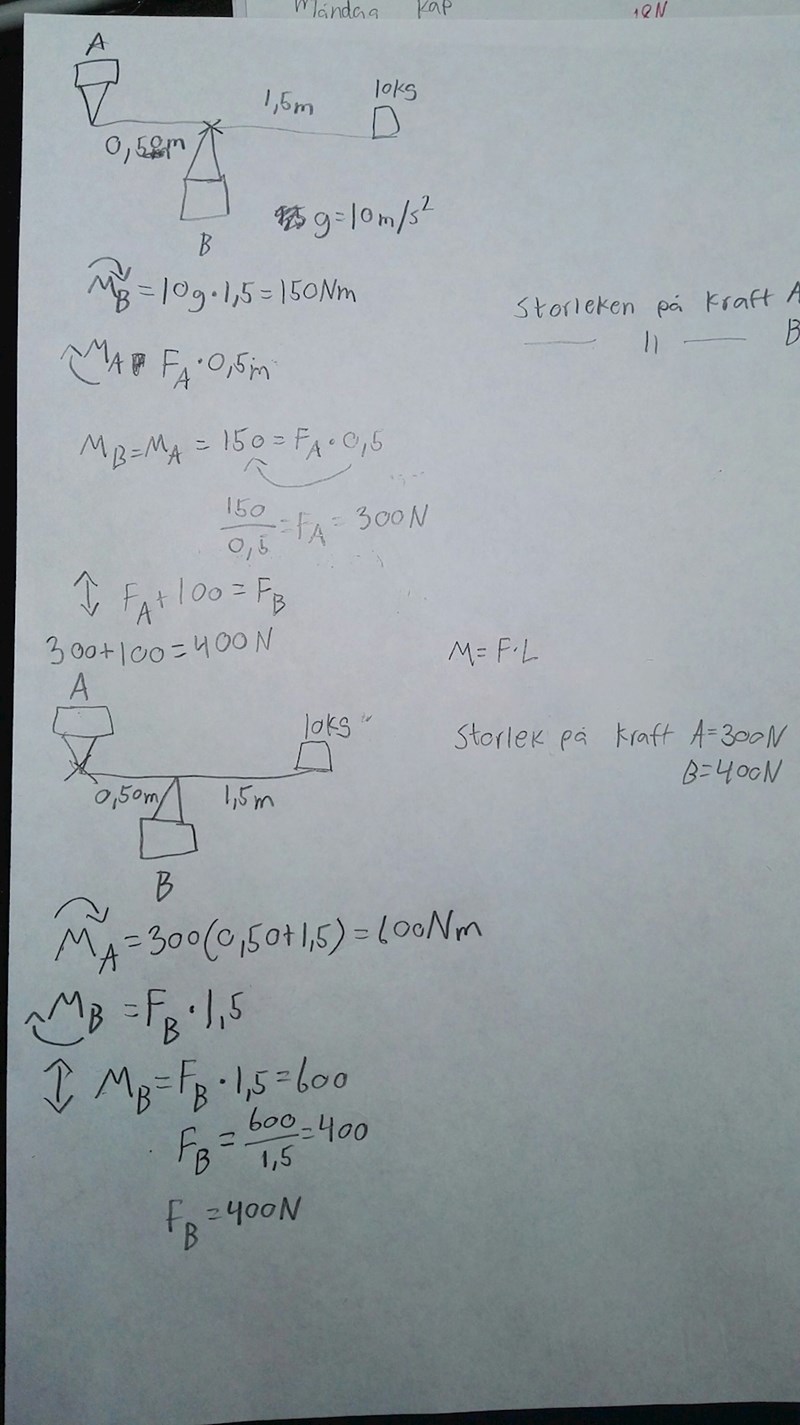 Måndag kap
10N
A
1,5m
10kg
0,50m
B
g=10m/s²
M_B=10g·1,5=150Nm
Storleken på kraft A
—— 11 —— B
M_A F_A·0,5m
M_B=M_A=150=F_A·0,5
150/0,5=F_A=300N
F_A+100=F_B
300+100=400N
M=F·L
A
10kg
Storlek på kraft A=300N
B=400N
0,50m
1,5m
B
M_A=300(0,50+1,5)=600Nm
M_B=F_B·1,5
M_B=F_B·1,5=600
F_B=600/1,5=400
F_B=400N